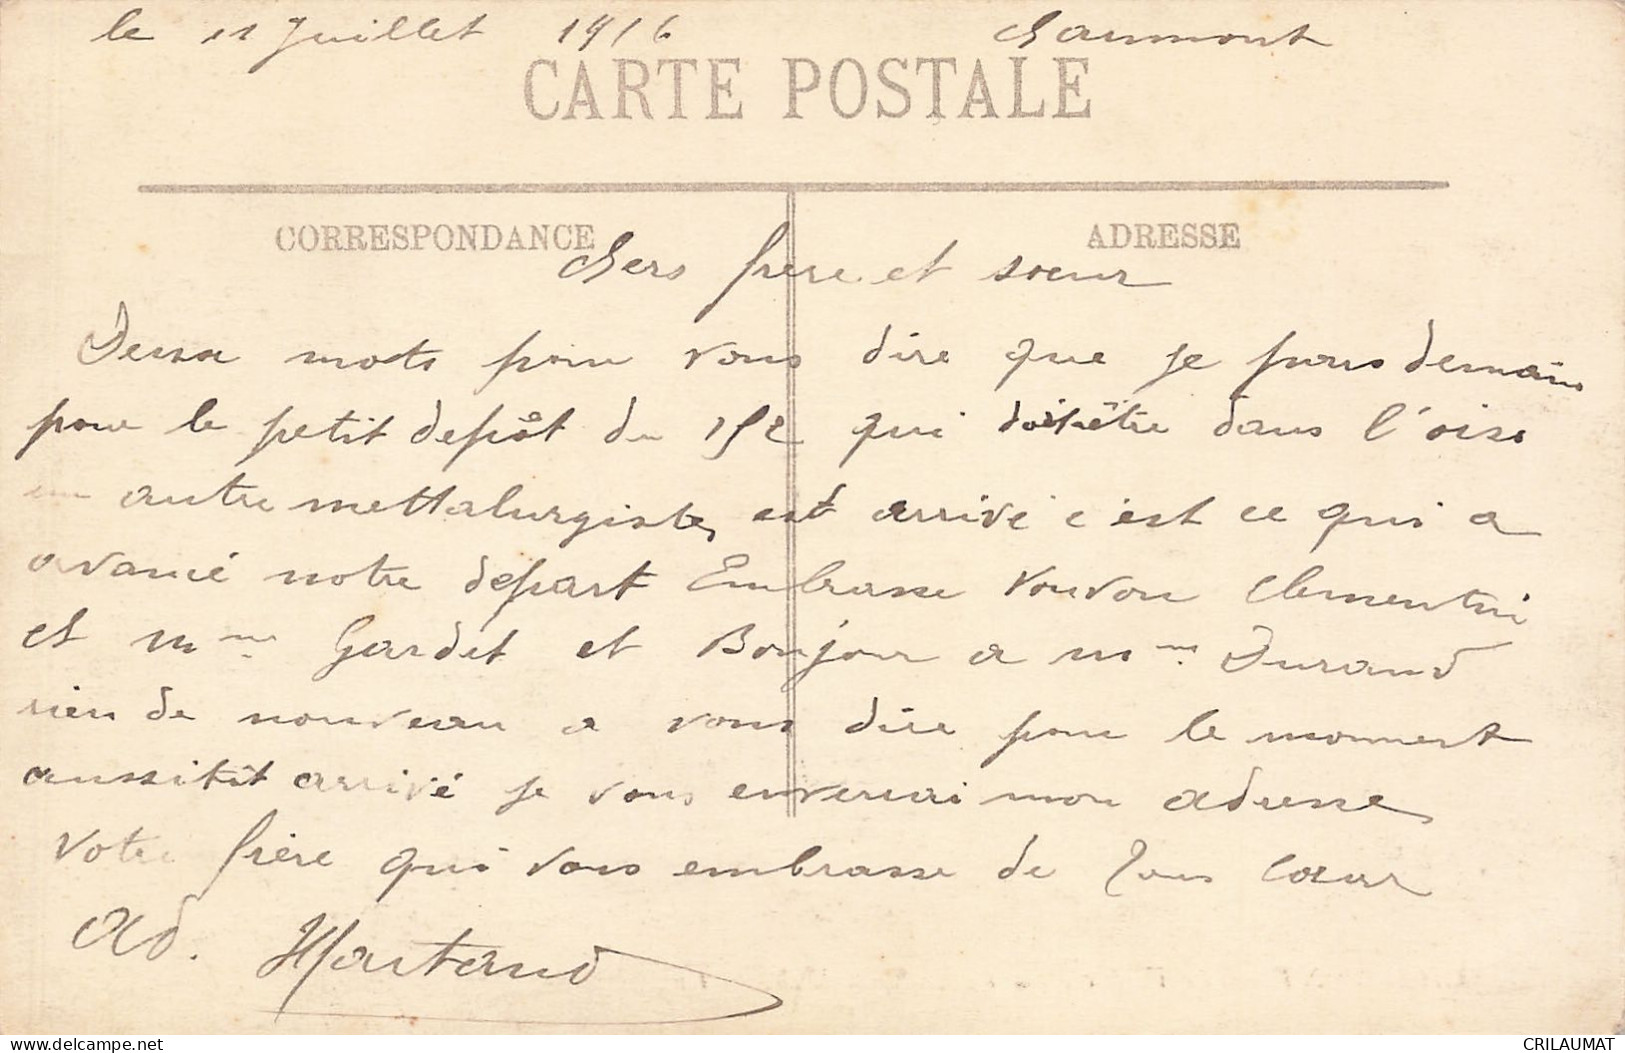 le 11 Juillet 1916 Chaumont
CARTE POSTALE
CORRESPONDANCE ADRESSE
Chers frère et soeur
Deux mots pour vous dire que je pars demain
pour le petit depôt du 152 qui doit être dans l'oise
un autre mettalurgiste est arrivé c'est ce qui a
avancé notre depart Embrasse Vonvon Clementine
et Mme Gardet et Bonjour a Mme Durand
rien de nouveau a vous dire pour le moment
aussitôt arrivé je vous enverrai mon adresse
Votre frère qui vous embrasse de tous coeur
Ad. Martaud
delcampe.net
CRILAUMAT